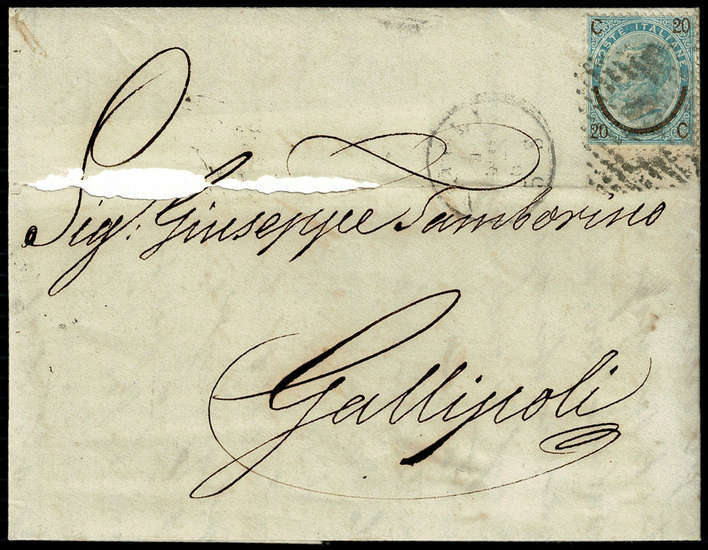 C 20
POSTE ITALIANE
20 C
Sigr. Giuseppe Tamborino
Gallipoli